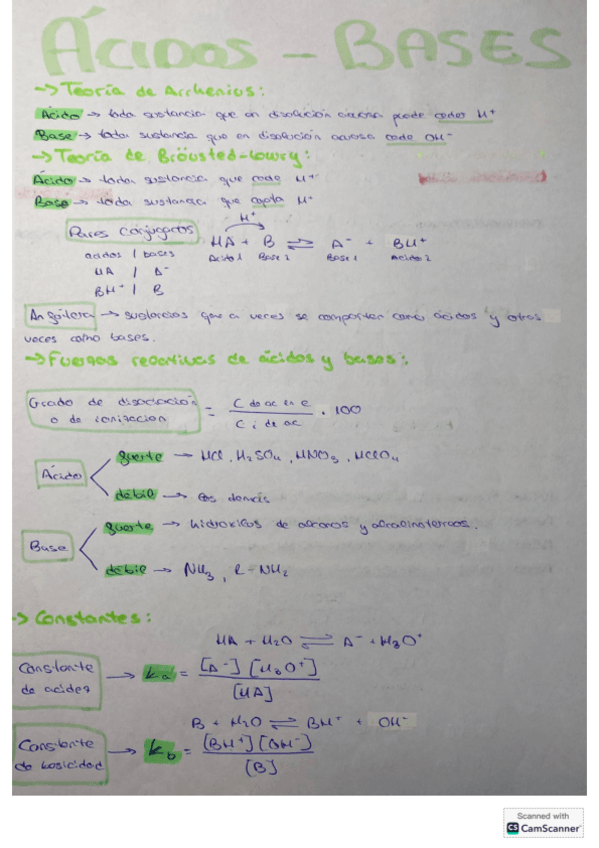 ÁCIDOS - BASES
→ Teoría de Arrhenius:
Ácido → toda sustancia que en disolución acuosa puede ceder H⁺
Base → toda sustancia que en disolución acuosa cede OH⁻
→ Teoría de Bröusted-lowry:
Ácido → toda sustancia que cede H⁺
Base → toda sustancia que capta H⁺
H⁺
Pares conjugados HA + B ⇌ A⁻ + BH⁺
ácidos | bases Ácido 1 Base 2 Base 1 Ácido 2
HA | A⁻
BH⁺ | B
Anfótera → sustancias que a veces se comportan como ácidos y otras
veces como bases.
→ Fuerzas relativas de ácidos y bases:
Grado de disociación
o de ionización = C de ac en e / C i de ac · 100
Ácido
fuerte → HCl, H₂SO₄, HNO₃, HClO₄
débil → los demás
Base
fuerte → hidróxidos de alcanos y alcalinotérreos.
débil → NH₃, R-NH₂
→ Constantes:
HA + H₂O ⇌ A⁻ + H₃O⁺
Constante
de acidez → Ka = [A⁻][H₃O⁺] / [HA]
B + H₂O ⇌ BH⁺ + OH⁻
Constante
de basicidad → Kb = [BH⁺][OH⁻] / [B]
Scanned with
CS CamScanner